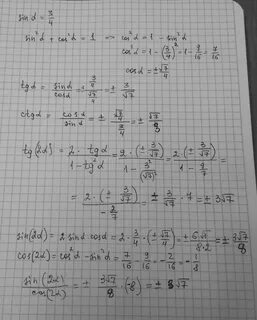 sin α = 3/4
sin²α + cos²α = 1 ⇒ cos²α = 1 - sin²α
cos²α = 1 - (3/4)² = 1 - 9/16 = 7/16
cos α = ± √7/4
tg α = sin α / cos α = ± (3/4)/(√7/4) = ± 3/√7
ctg α = cos α / sin α = ± (√7/4)/(3/4) = ± √7/3
tg(2α) = 2·tg α / (1 - tg²α) = 2·(± 3/√7) / (1 - 3²/(√7)²) = 2·(± 3/√7) / (1 - 9/7) =
= 2·(± 3/√7) / (-2/7) = ± 3/√7 · 7 = ± 3√7
sin(2α) = 2 sin α cos α = 2 · 3/4 · (± √7/4) = ± 6√7 / 8·2 = ± 3√7/8
cos(2α) = cos²α - sin²α = 7/16 - 9/16 = - 2/16 = - 1/8
sin(2α) / cos(2α) = ± 3√7/8 · (-8) = ± 3√7